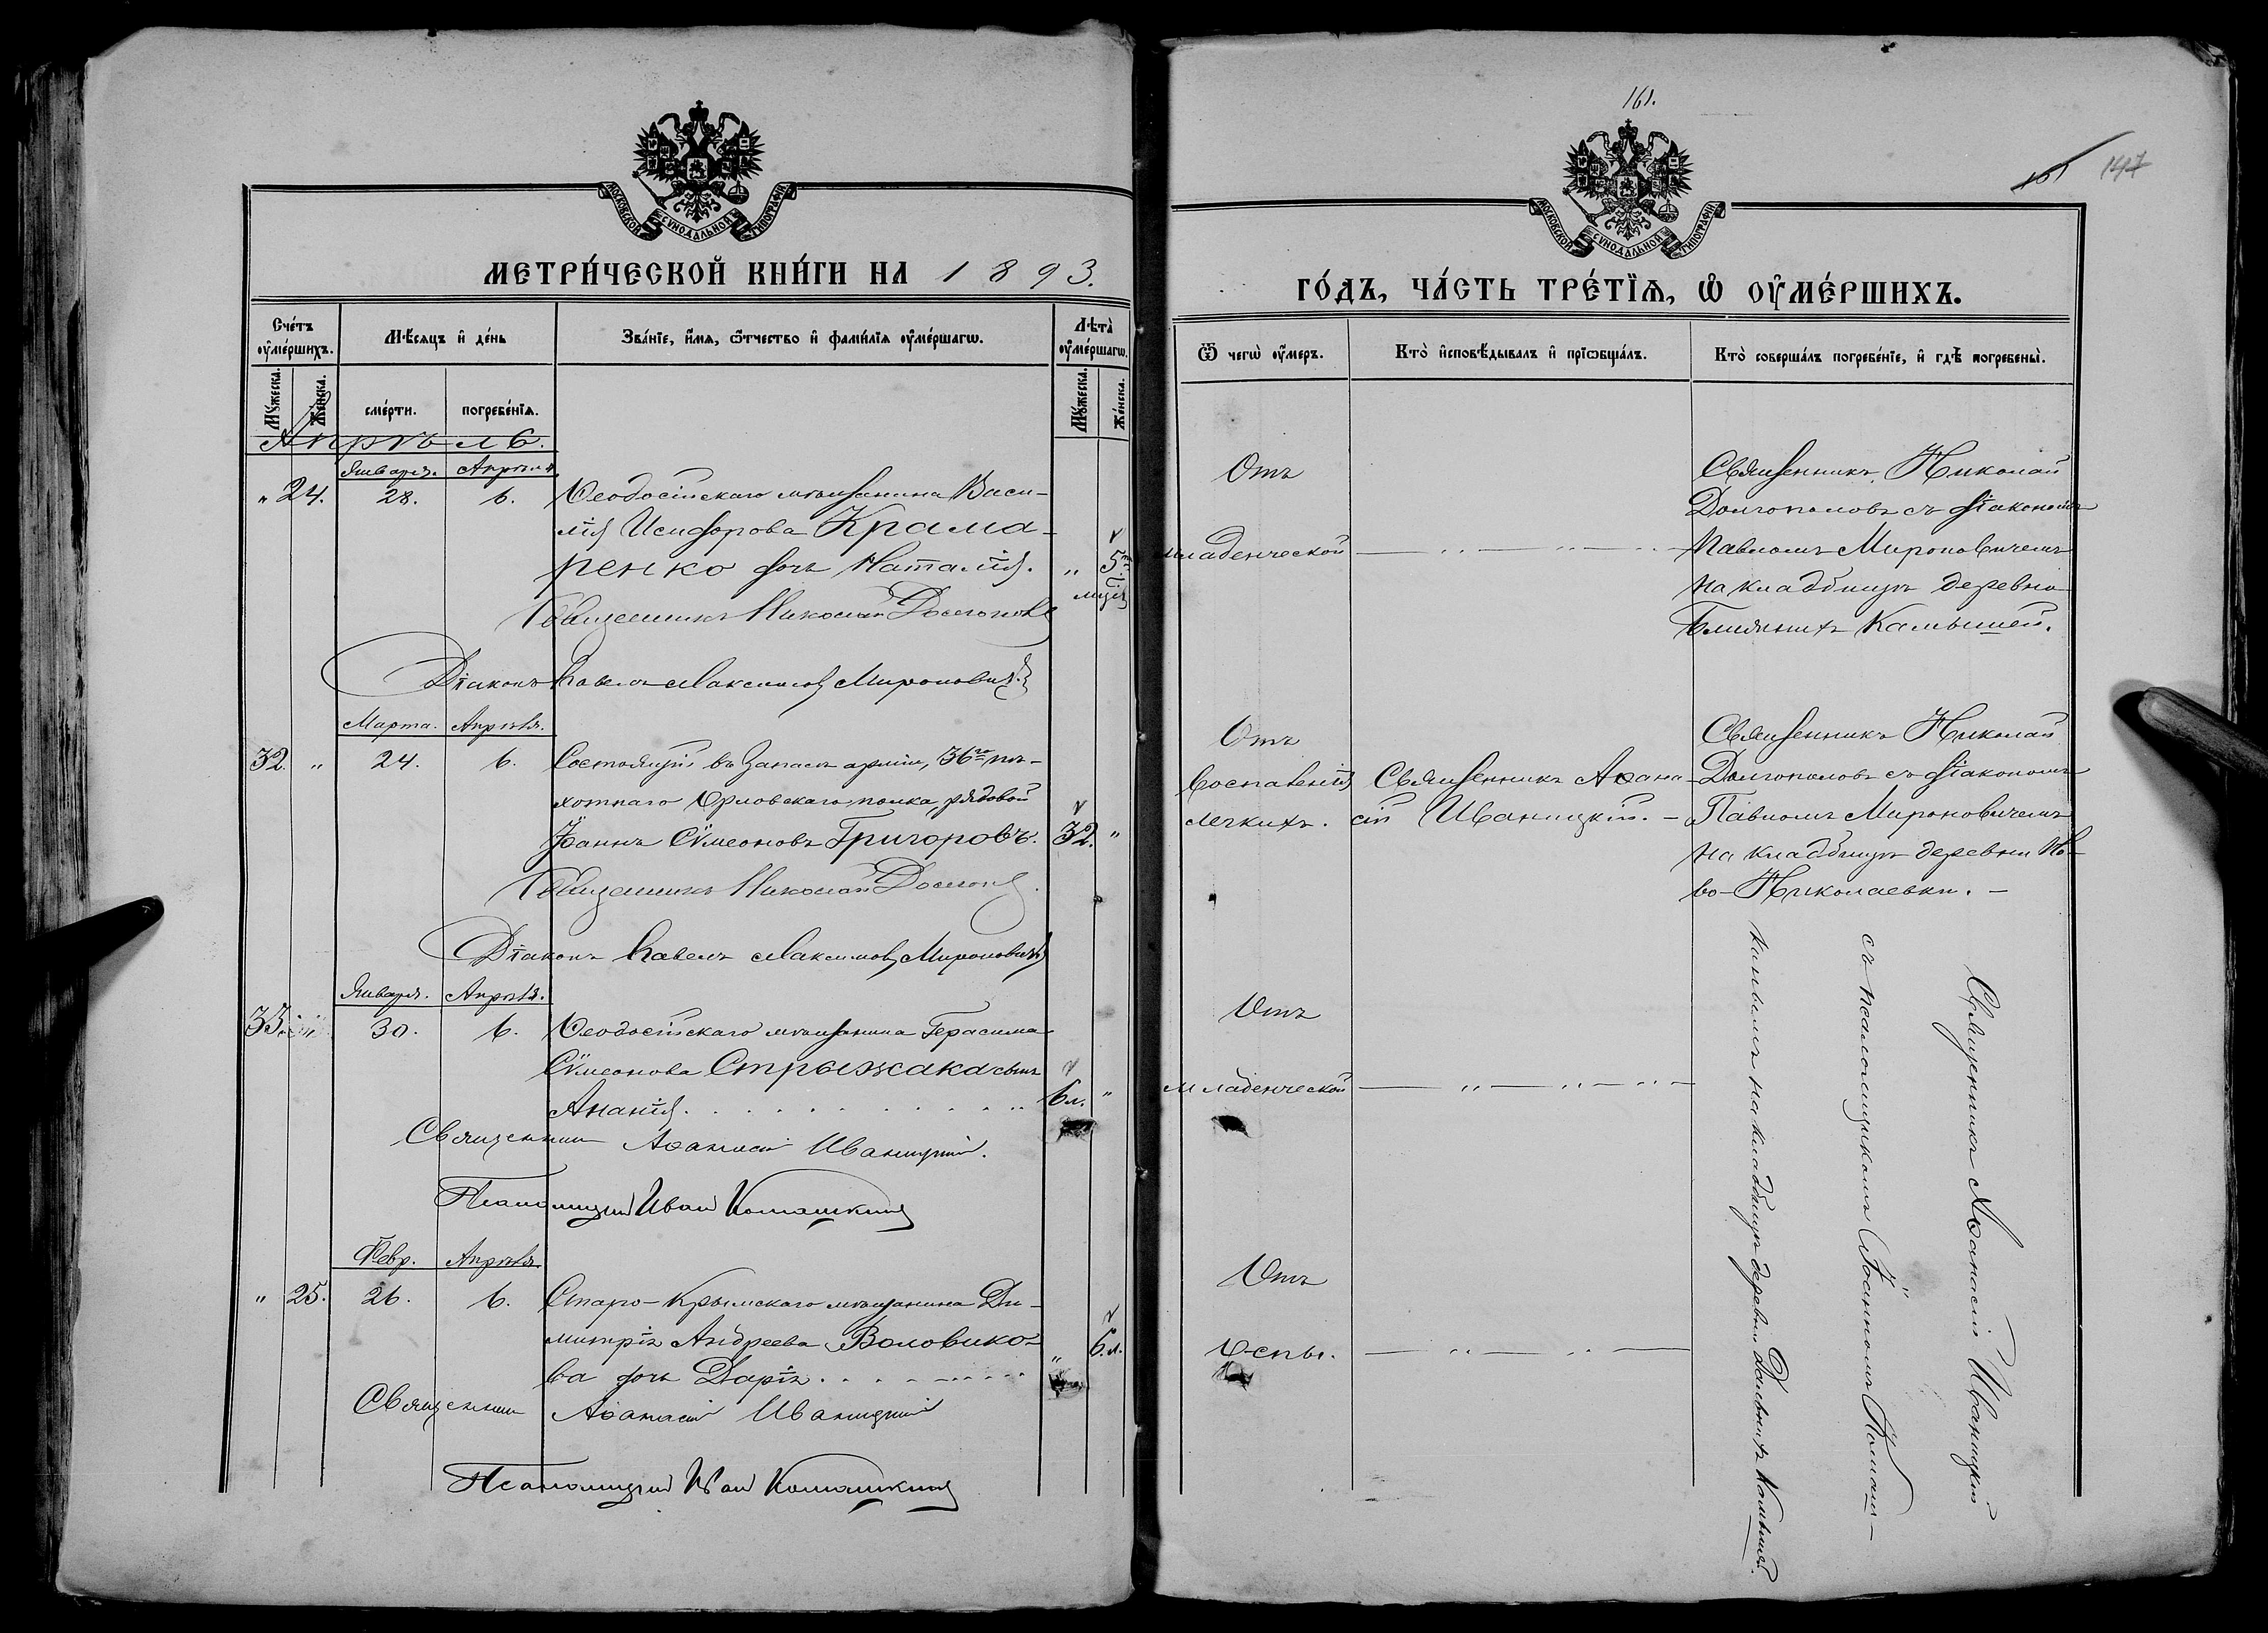 МОСКОВСКОЙ СѴНОДАЛЬНОЙ ТИПОГРАФІИ
МЕТРИ́ЧЕСКОЙ КНИ́ГИ НА 1893.
Сче́тъ ᲂу҆ме́ршихъ.
Мѣ́сяцъ и҆ де́нь
Зва́нїе, и҆́мя, ѻ҆́тчество и҆ фами́лїя ᲂу҆ме́ршагѡ.
Лѣта̀ ᲂу҆ме́ршагѡ.
Мꙋ́жеска.
Же́нска.
сме́рти.
погребе́нїя.
Мꙋ́жеска.
Же́нска.
Апрѣль.
Января. Апрѣля
„ 24. 28. 6. Ѳеодосійскаго мѣщанина Васи-
лія Исидорова Крама-
ренко дочь Наталія. „ 5ть
мѣсц
Священникъ Николай Долгополовъ
Діаконъ Павелъ Максимовъ Мироновичъ
Марта. Апрѣль.
32. „ 24. 6. Состоящій въ запасѣ арміи, 36го пѣ-
хотнаго Орловскаго полка, рядовой
Іоаннъ Сѵмеоновъ Григоровъ. 32. „
Священникъ Николай Долгопол
Діаконъ Павелъ Максимовъ Мироновичъ
Января. Апрѣль.
33. 30. 6. Ѳеодосійскаго мѣщанина Герасима
Сѵмеонова Стрыжака сынъ
Ананія. 6 л. „
Священникъ Аѳанасій Иваницкій.
Псаломщикъ Иванъ Комашкинъ
Февр. Апрѣль.
„ 25. 26. 6. Старо-Крымскаго мѣщанина Ди-
митрія Андреева Воловико-
ва дочь Дарія. „ 6 л.
Священникъ Аѳанасій Иваницкій
Псаломщикъ Иванъ Комашкинъ
161.
147
МОСКОВСКОЙ СѴНОДАЛЬНОЙ ТИПОГРАФІИ
ГО́ДЪ, ЧА́СТЬ ТРЕ́ТЇЯ, Ѡ҆ ОУ҆МЕ́РШИХЪ.
Ѿ чегѡ̀ ᲂу҆́меръ.
Кто̀ и҆сповѣ́дывалъ и҆ прїѡбща́лъ.
Кто̀ соверша́лъ погребе́нїе, и҆ гдѣ̀ погребены̀.
Отъ
младенческой
Священникъ Николай
Долгополовъ съ діакономъ
Павломъ Мироновичемъ
на кладбищѣ деревни
Ближнихъ Камышей.
Отъ
воспаленія
легкихъ.
Священникъ Аѳана-
сій Иваницкій. –
Священникъ Николай
Долгополовъ съ діакономъ
Павломъ Мироновичемъ
на кладбищѣ деревни Но-
во-Николаевки. –
Отъ
младенческой
Отъ
Оспы.
Священникъ Аѳанасій Иваницкій
съ псаломщикомъ Іоанномъ Комаш-
кинымъ на кладбищѣ деревни Дальнихъ Камышей.